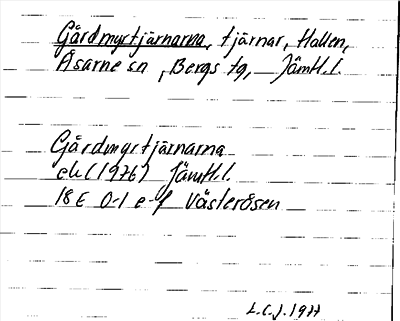 Gårdmyrtjärnarna, tjärnar, Hallen,
Åsarne sn, Bergs tg, Jämtl.l.
Gårdmyrtjärnarna
ek (1976) Jämtl.l.
18E 0-1 e-f Västerösen
L.C.J. 1977